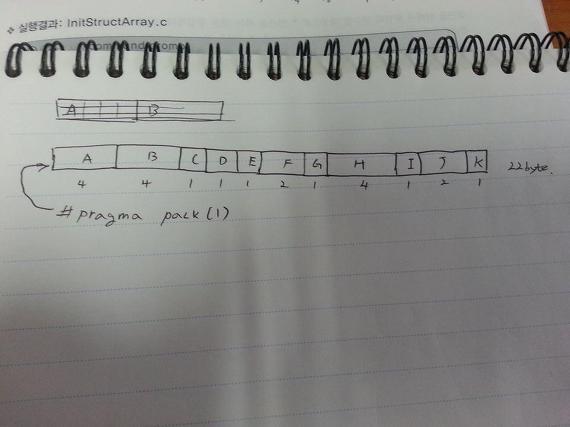 ❖ 실행결과: InitStructArray.c
A B
A B C D E F G H I J K 22byte.
4 4 1 1 1 2 1 4 1 2 1
#pragma pack(1)